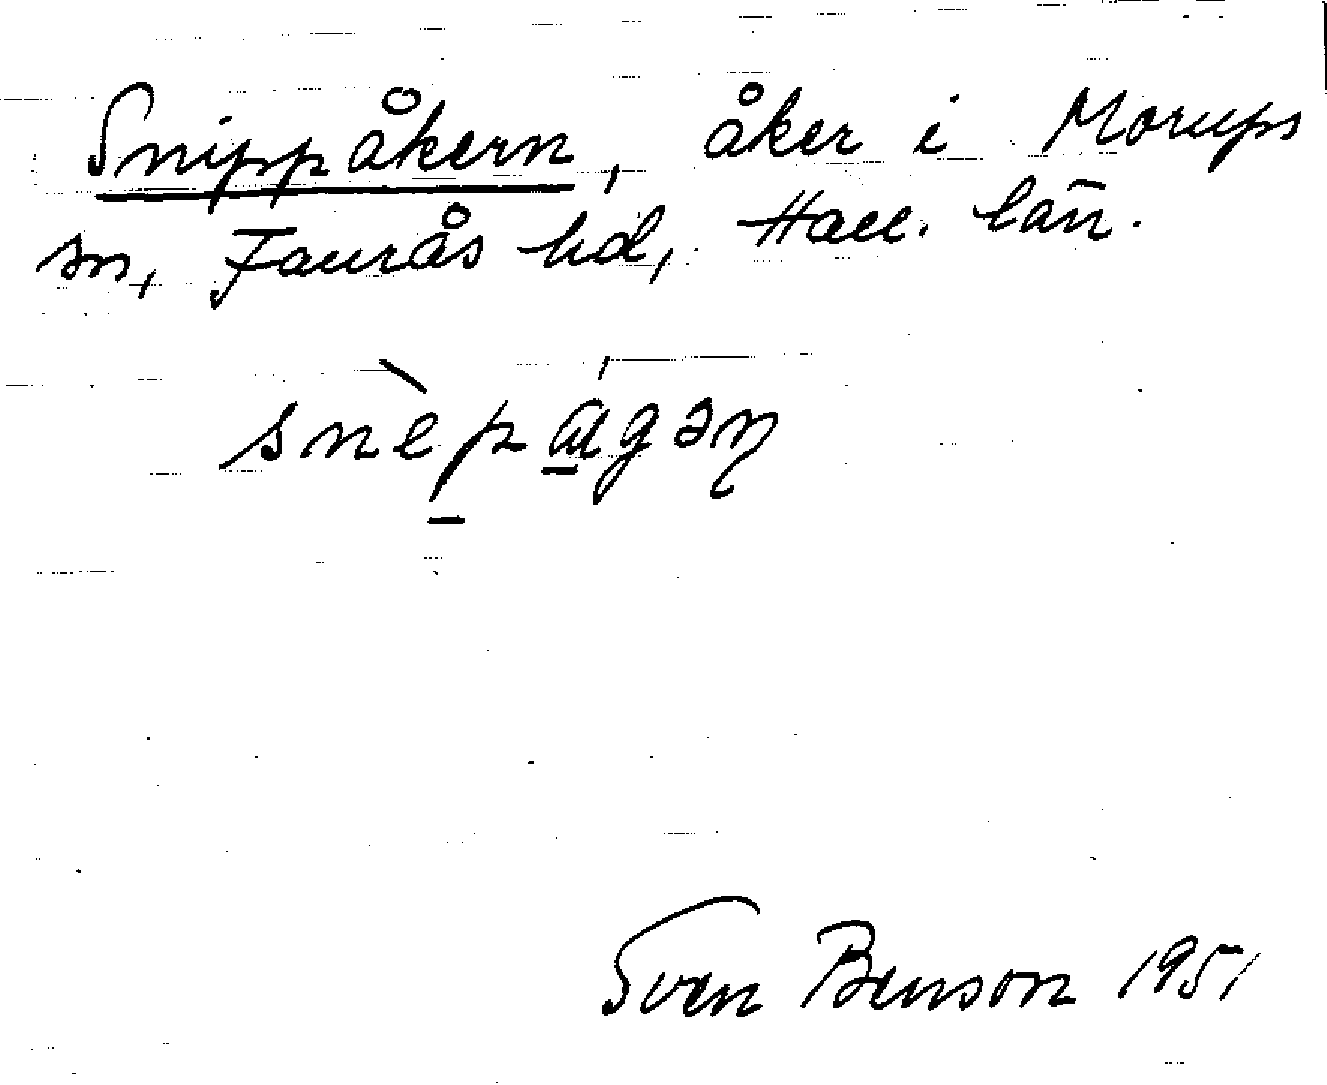 Snippåkern, åker i Morups
sn, Faurås hd, Hall. län.
snèpågəɳ
Sven Benson 1951